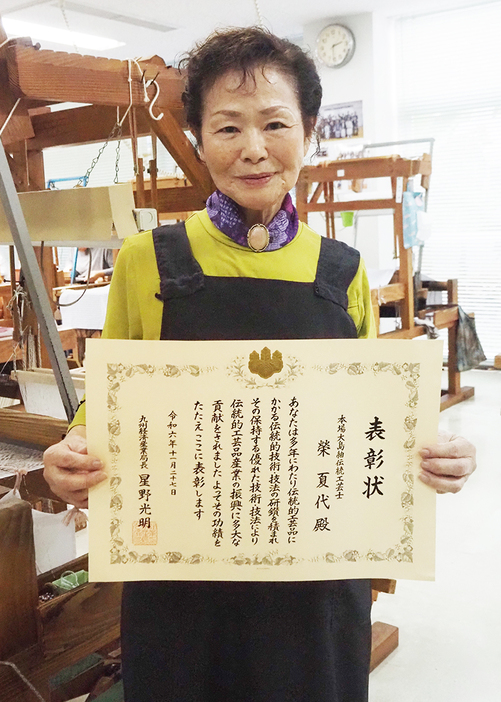 表彰状
本場大島紬伝統工芸士
榮 夏代 殿
あなたは多年にわたり伝統的工芸品に
かかる伝統的技術・技法の研鑽を積まれ
その保持する優れた技術・技法により
伝統的工芸品産業の振興に多大な
貢献をされました よってその功績を
たたえ ここに表彰します
令和六年十一月二十七日
九州経済産業局長 星野光明